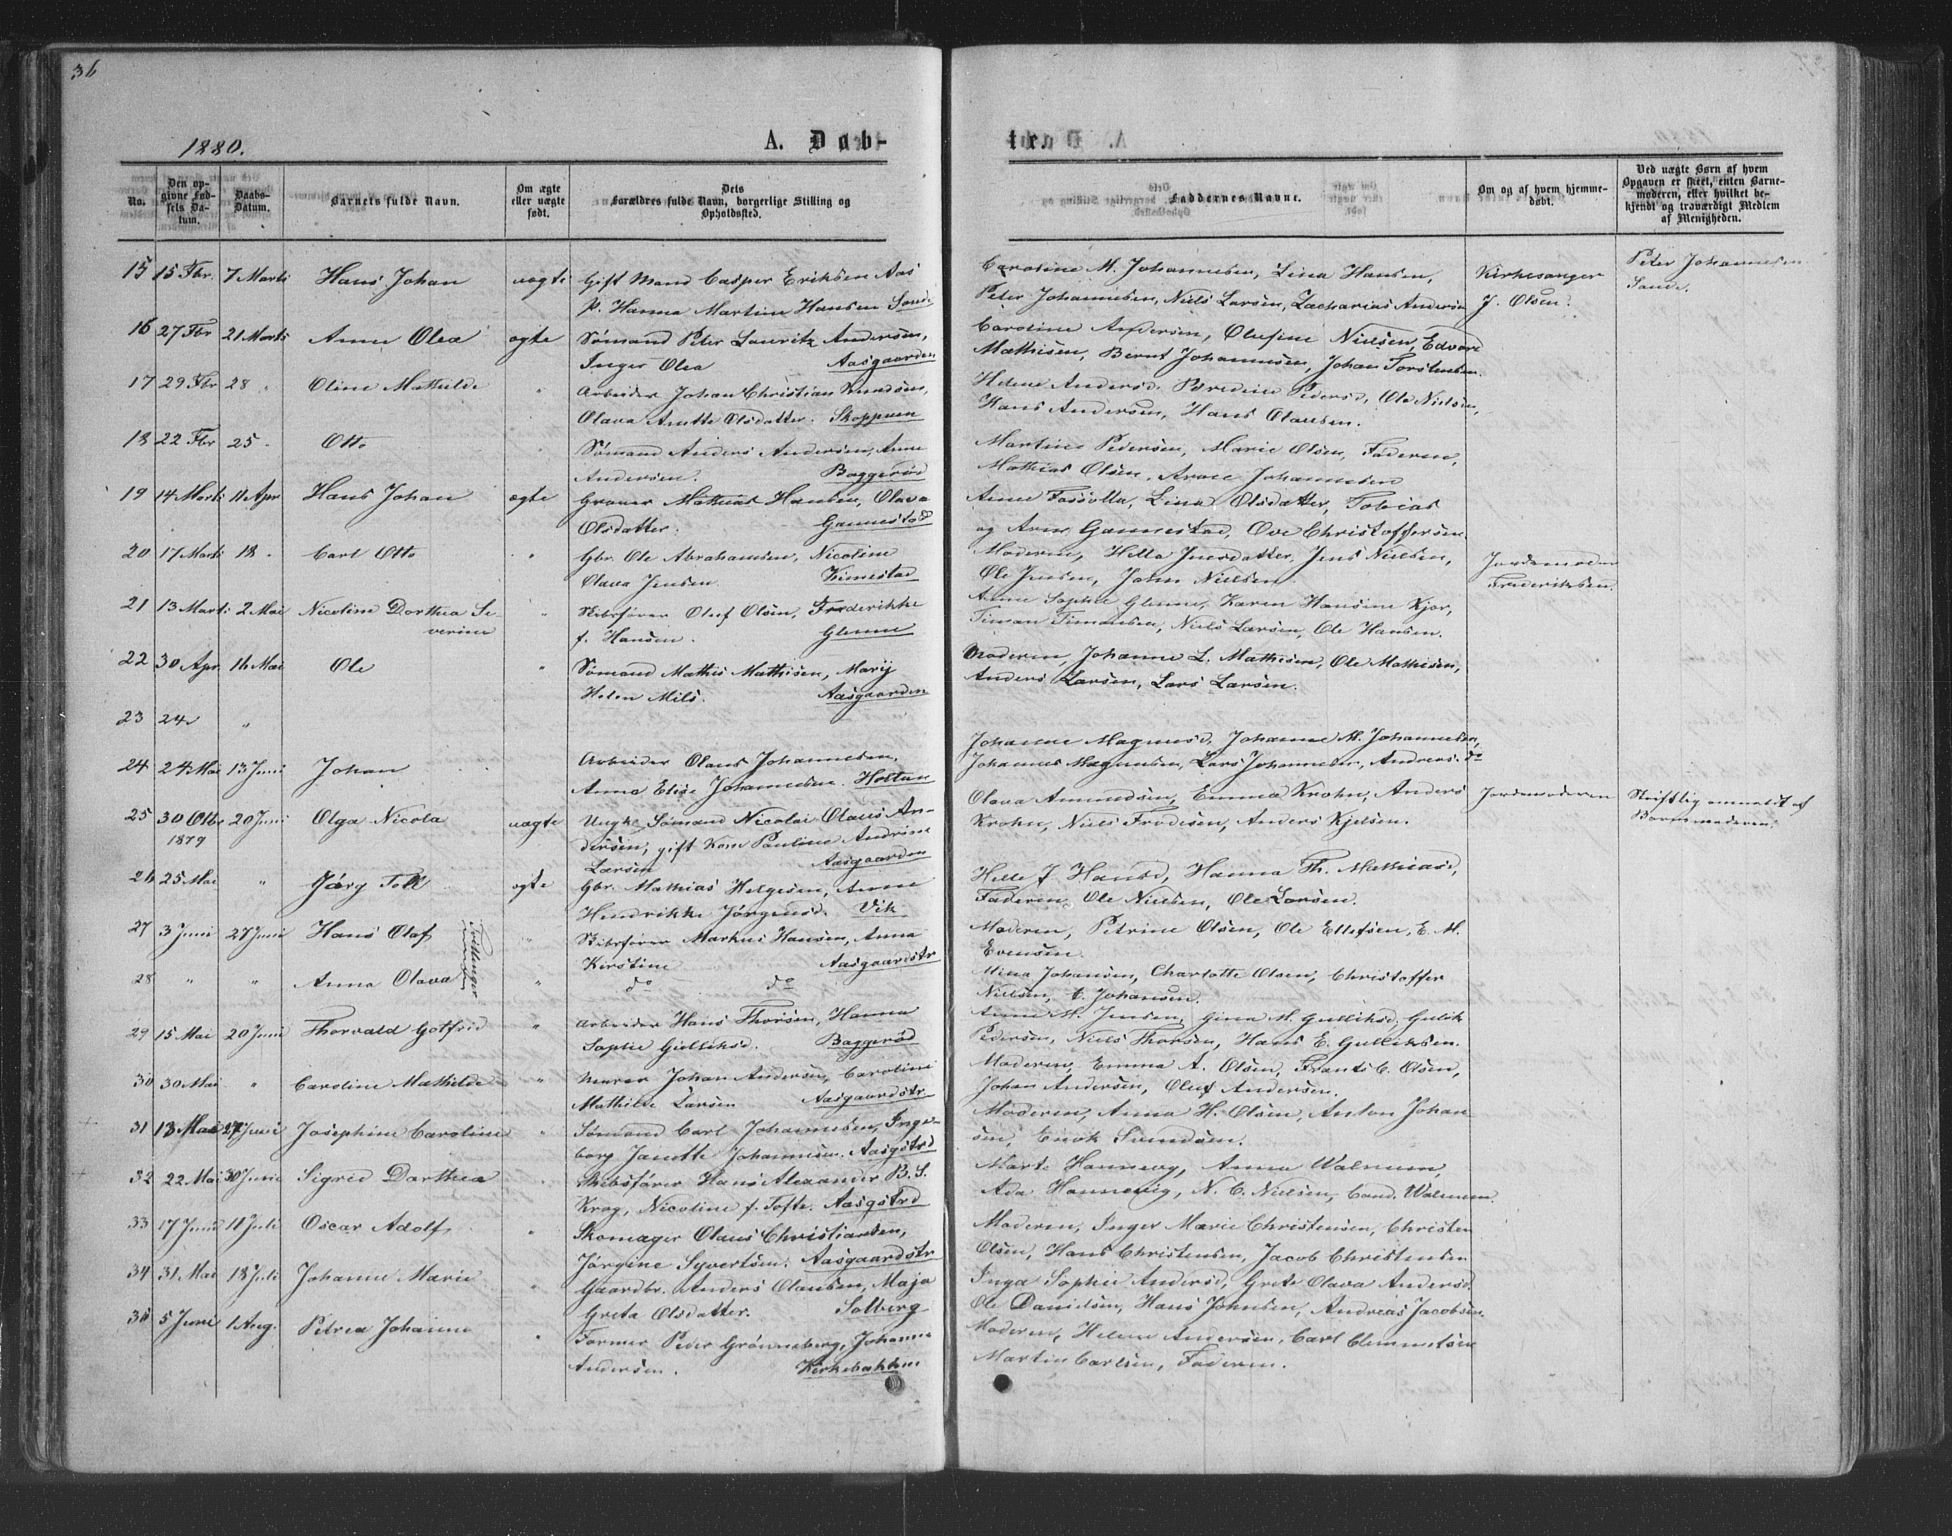 36
1880.
A. Døb-
te.
No.
Den opgivne Fødsels Datum.
Daabs-Datum.
Barnets fulde Navn.
Om ægte eller uægte født.
Dets Forældres fulde Navn, borgerlige Stilling og Opholdssted.
Faddernes Navne.
Om og af hvem hjemmedøbt.
Ved uægte Børn af hvem Opgaven er skeet, enten Barnemoderen, eller hvilket bekjendt og troværdigt Medlem af Menigheden.
15 15 Fbr. 7 Marti Hans Johan uægte Gift Mand Casper Eriksen Aas
P. Hanna Martine Hansen Sande
Caroline M. Johannesen, Lina Hansen,
Peter Johannesen, Niels Larsen, Zacharias Andersen
Kirkesanger
J. Olsen.
Peter Johannesen
Sande.
16 27 Fbr 21 Marti Anne Olea ægte Sømand Peter Lauritz Andersen,
Inger Olea Aasgaarden
Caroline Andersen, Olufine Nielsen, Edvard
Mathisen, Bernt Johannesen, Johan Torstensen.
17 29 Fbr 28 " Oline Mathilde " Arbeider Johan Christian
Olava Anette Olsdatter. Skoppum
Helene Andersd. Bredine Pedersd, Ole Nielsen,
Hans Andersen, Hans Olausen.
18 22 Fbr 25 " Otto Sømand Anders Andersen, Anne
Andersen. Baggerød
Martine Pedersen, Marie Olsen, Faderen,
Mathias Olsen, Johannesen
19 14 Marti 11 Apr Hans Johan ægte Graver Mathias Hansen, Olava
Olsdatter. Gannestad
Anne Lina Olsdatter, Tobias
og Gannestad, Ove Christoffersen.
20 17 Marti 18 " Carl Otto " Gbr. Ole Abrahamsen, Nicoline
Olava Jensen. Kimestad
Moderen, Hella Jensdatter, Jens Nielsen,
Ole Jensen, John Nielsen
Jordemoder
Frederiksen.
21 13 Marti 2 Mai Nicoline Dorthea Severine " Skibsfører Oluf Olsen, Frederikke
f. Hansen. Glenne
Anne Sophie Glenne, Karen Hansine Kjær,
Timan Timansen, Niels Larsen, Ole Hansen.
22 30 Apr 16 Mai Ole " Sømand Mathis Mathisen, Marij
Helen Mils. Aasgaarden
Moderen, Johanne L. Mathisen, Ole Mathisen,
Anders Larsen, Lars Larsen.
23 24 "
24 24 Mai 13 Juni Johan Arbeider Olaus Johannesen,
Anne Elise Johannesen. Holtan
Johanne Magnusd, Johanne M. Johannesen,
Johannes Magnussen, Lars Johannesen, Anders do
25 30 Otbr 1879 20 Juni Olga Nicola uægte Ungk. Sømand Nicolai Olaus Andersen,
gift Kone Pauline Andrine
Larsen Aasgaarden
Olava Amundsen, Emma Krohn, Anders
Krohn, Niels Frodesen, Anders Kjelsen.
Jordemoderen
Skriftlig anmeldt af
Barnemoderen.
26 25 Mai " Jørg Toll ægte Gbr. Mathias Helgesen, Anne
Hendrikke Jørgensd. Vik
Helle J. Hansd, Hanna Th. Mathiasd,
Faderen, Ole Nielsen, Ole Larsen.
27 3 Juni 27 Juni Hans Olaf Tvillinger " Skibsfører Markus Hansen, Anna
Kirstine Aasgaardstr
Moderen, Petrine Olsen, Ole Ellefsen, E. M.
Evensen.
28 " " Anna Olava " do do
Mina Johansen, Charlotte Olsen, Christoffer
Nielsen, C. Johansen.
29 15 Mai 20 Juni Thorvald Gotfrid " Arbeider Hans Thorsen, Hanna
Sophie Gulliksd. Baggerød
Anne M. Jensen, Gina M. Gulliksd, Gulik
Pedersen, Niels Thorsen, Hans E. Gulliksen.
30 30 Mai " Caroline Mathilde " Murer Johan Andersen, Caroline
Mathilde Larsen Aasgaardstr
Moderen, Emma A. Olsen, Frants C. Olsen,
Johan Andersen, Oluf Andersen.
31 13 Mai 27 Juni Josephine Caroline " Sømand Carl Johannesen, Ingeborg
Janette Johannesen. Aasgstrd
Moderen, Anna H. Olsen, Anton Johansen,
Enok Svendsen.
32 22 Mai 30 Juni Sigrid Dorthea " Skibsfører Hans Alexander B. S.
Krog, Nicoline f. Tofte. Aasgstrd
Marte Hannevig, Anna Walmun,
Ada Hannevig, N. C. Nielsen, Cand. Walmun.
33 17 Juni 11 Juli Oscar Adolf " Skomager Olaus Christiansen,
Jørgine Syvertsen. Aasgaardstr
Moderen, Inger Marie Christensen, Christen
Olsen, Hans Christensen, Jacob Christensen
34 31 Mai 18 Juli Johanne Marie " Gaardbr. Anders Olausen, Maja
Greta Olsdatter. Solberg
Inga Sophie Andersd, Grete Olava Andersd.
Ole Danielsen, Hans Johnsen, Andreas Jacobsen.
35 5 Juni 1 Aug. Petrea Johanne " Former Peder Grønneberg, Johanne
Andersen. Kirkebakken
Moderen, Helene Andersen, Carl Clemmetsen
Martin Carlsen, Faderen.